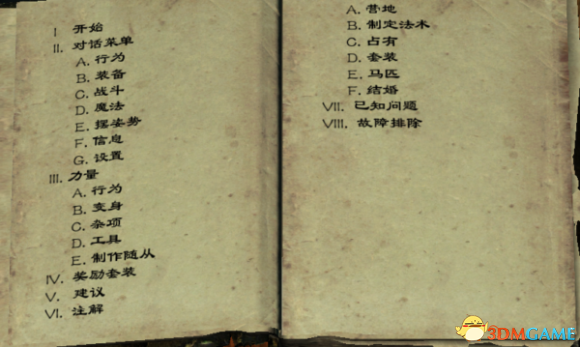 I 开始
II. 对话菜单
A. 行为
B. 装备
C. 战斗
D. 魔法
E. 摆姿势
F. 信息
G. 设置
III. 力量
A. 行为
B. 变身
C. 杂项
D. 工具
E. 制作随从
IV. 奖励套装
V. 建议
VI. 注解
A. 营地
B. 制定法术
C. 占有
D. 套装
E. 马匹
F. 结婚
VII. 已知问题
VIII. 故障排除
3DMGAME